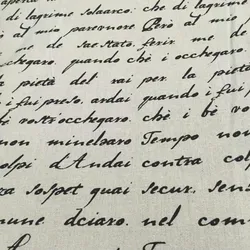 di lagrime solaarco: che di lagrime
al mio parennore Però al mio
de me Sae Stato. ferir me de
chegaro. quando chè i occhegaro.
pietà del rai per la pietà
i fui preso. ardai quando i fui
bè vostr'occhegaro. chè i bè vo
non minelsaro Tempo non
colpi d'Andai contra colpi
sospet quai secur. sens
mune dciaro. nel com